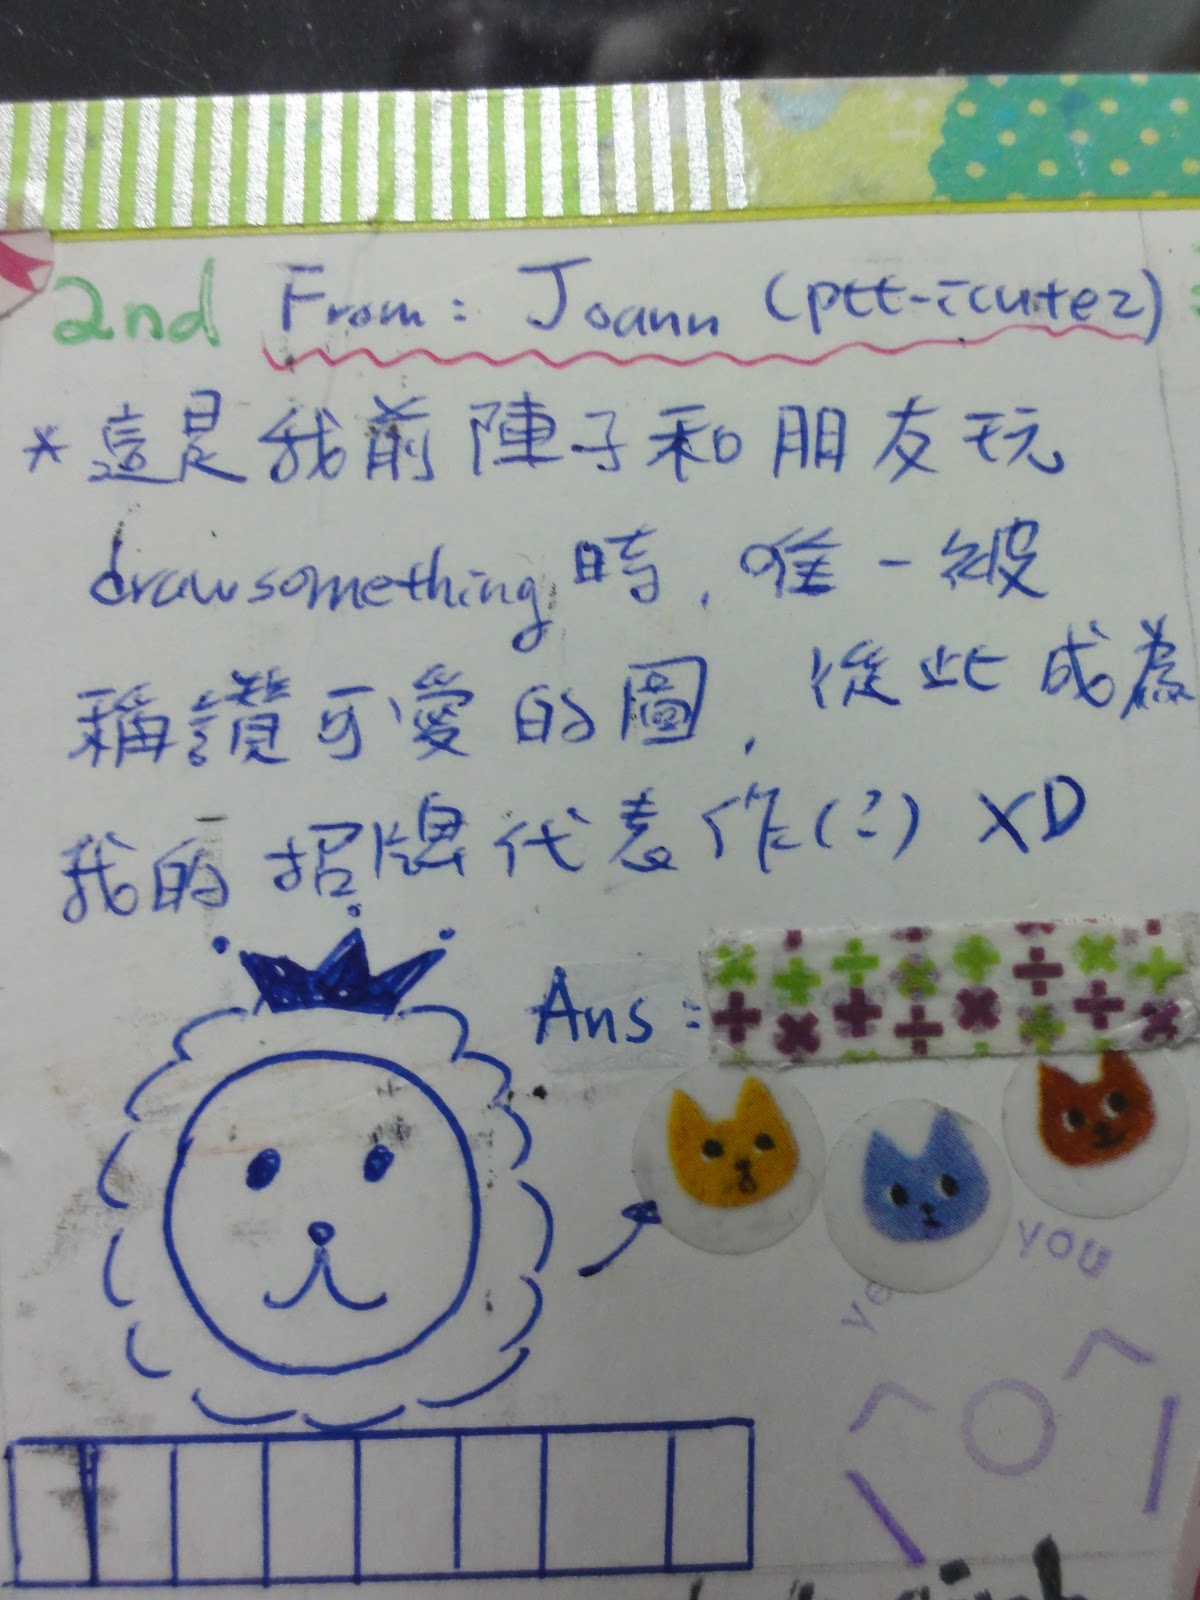 2nd From: Joann (ptt-icutez)
*這是我前陣子和朋友玩
drawsomething時,唯一被
稱讚可愛的圖,從此成為
我的招牌代表作(?) XD
Ans:
you